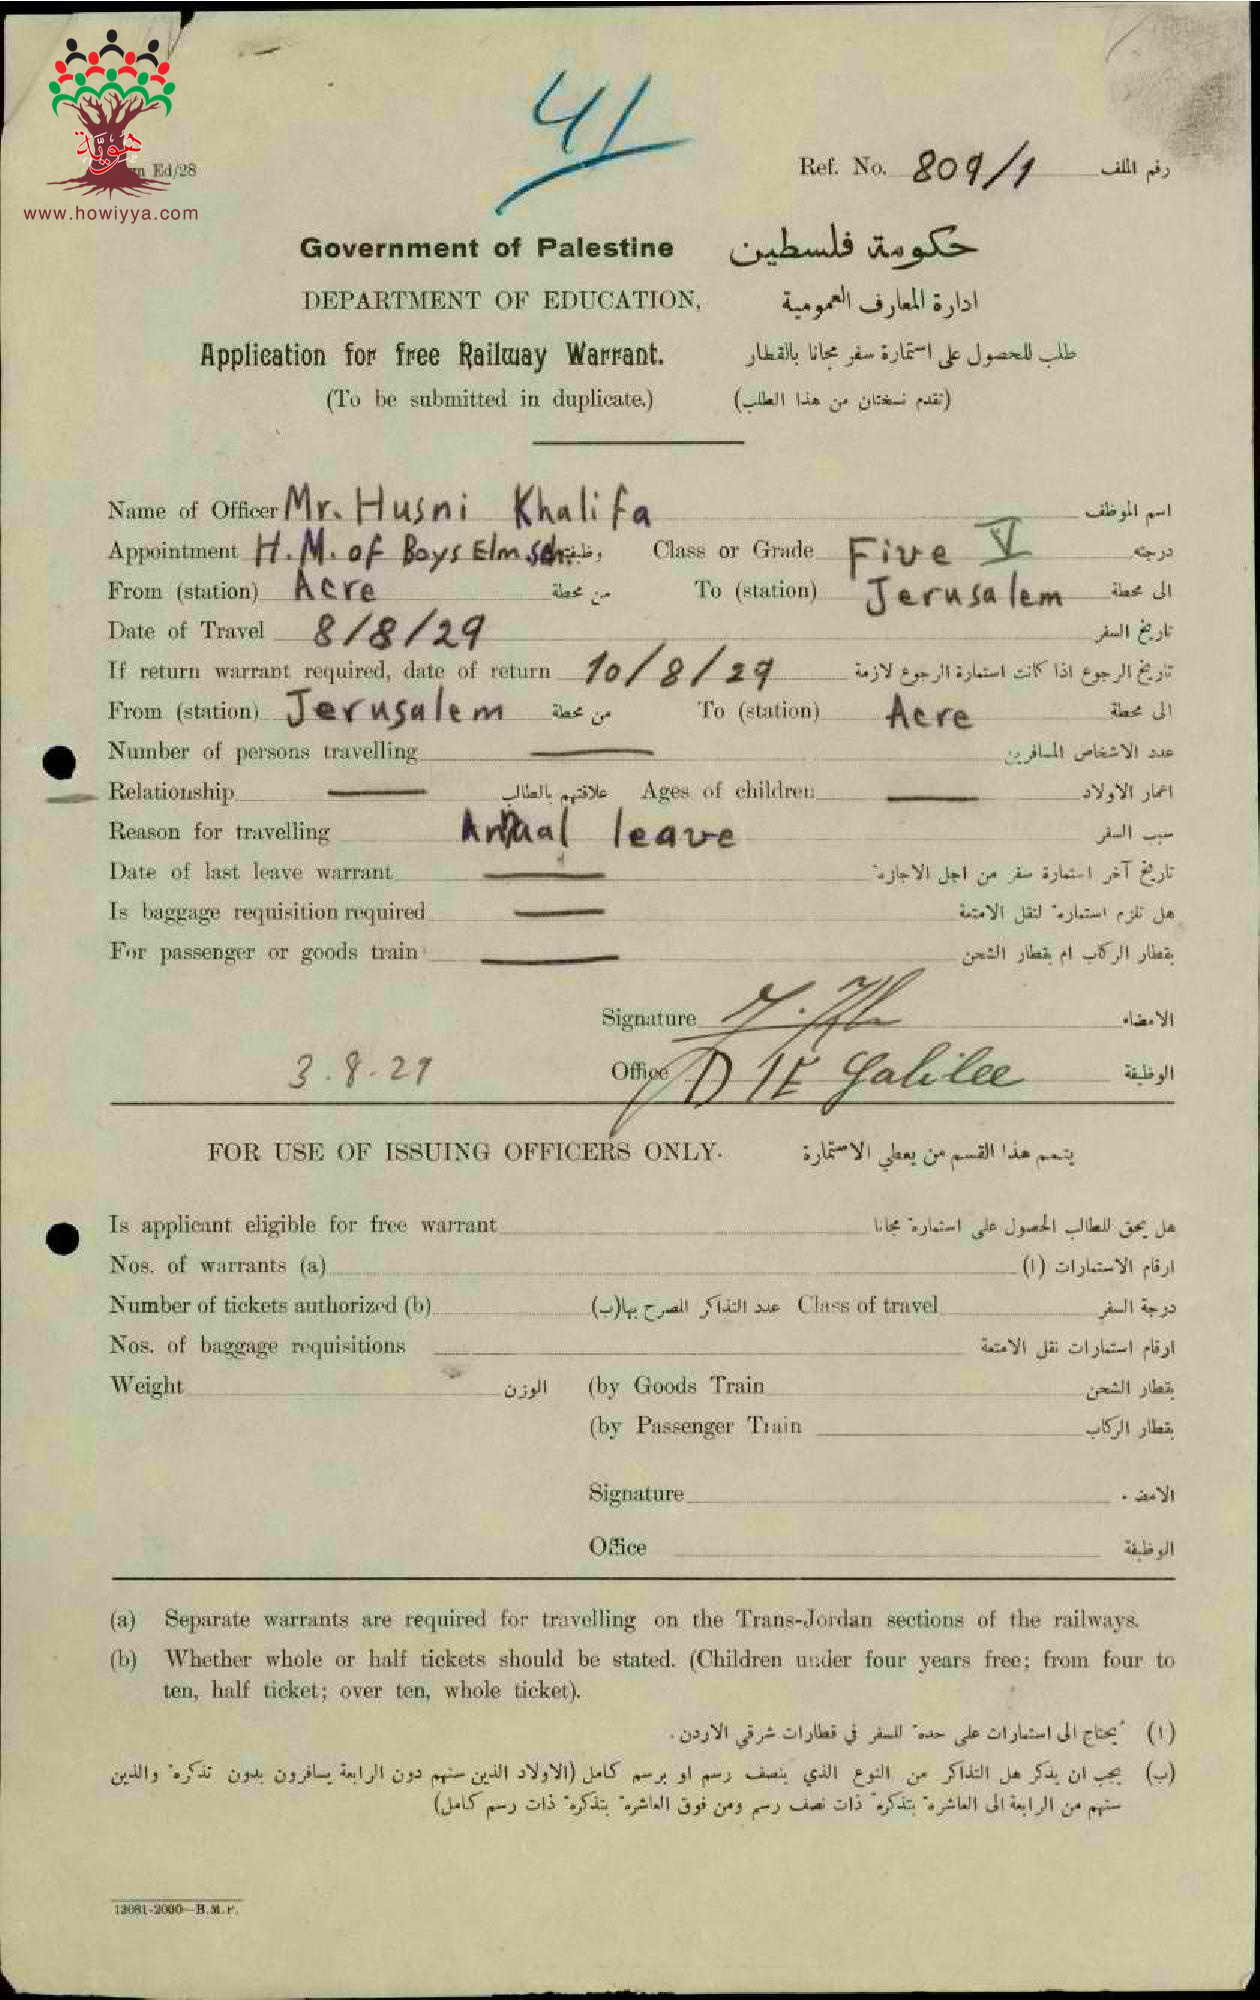 41
هوية
Ed/28
www.howiyya.com
Ref. No. 809/1 رقم الملف
Government of Palestine حكومة فلسطين
DEPARTMENT OF EDUCATION, ادارة المعارف العمومية
Application for free Railway Warrant. طلب للحصول على استمارة سفر مجانا بالقطار
(To be submitted in duplicate.) (تقدم نسختان من هذا الطلب)
Name of Officer Mr. Husni Khalifa اسم الموظف
Appointment H.M. of Boys Elm. Sch. Class or Grade Five V درجته
From (station) Acre من محطة To (station) Jerusalem الى محطة
Date of Travel 8/8/29 تاريخ السفر
If return warrant required, date of return 10/8/29 تاريخ الرجوع اذا كانت استمارة الرجوع لازمة
From (station) Jerusalem من محطة To (station) Acre الى محطة
Number of persons travelling عدد الاشخاص المسافرين
Relationship علاقتهم بالطالب Ages of children اعمار الاولاد
Reason for travelling Annual leave سبب السفر
Date of last leave warrant تاريخ آخر استمارة سفر من اجل الاجازة
Is baggage requisition required هل تلزم استمارة لنقل الامتعة
For passenger or goods train بقطار الركاب ام بقطار الشحن
Signature الامضاء
3.8.29 Office DIE Galilee الوظيفة
FOR USE OF ISSUING OFFICERS ONLY. يتمم هذا القسم من يعطي الاستمارة
Is applicant eligible for free warrant هل يحق للطالب الحصول على استمارة مجانا
Nos. of warrants (a) ارقام الاستمارات (ا)
Number of tickets authorized (b) عدد التذاكر المصرح بها(ب) Class of travel درجة السفر
Nos. of baggage requisitions ارقام استمارات نقل الامتعة
Weight الوزن (by Goods Train بقطار الشحن
(by Passenger Train بقطار الركاب
Signature الامضاء
Office الوظيفة
(a) Separate warrants are required for travelling on the Trans-Jordan sections of the railways.
(b) Whether whole or half tickets should be stated. (Children under four years free; from four to
ten, half ticket; over ten, whole ticket).
(ا) يحتاج الى استمارات على حدة للسفر في قطارات شرقي الاردن.
(ب) يجب ان يذكر هل التذاكر من النوع الذي بنصف رسم او برسم كامل (الاولاد الذين سنهم دون الرابعة يسافرون بدون تذكرة والذين
سنهم من الرابعة الى العاشرة بتذكرة ذات نصف رسم ومن فوق العاشرة بتذكرة ذات رسم كامل)
12081-2000—B.M.P.